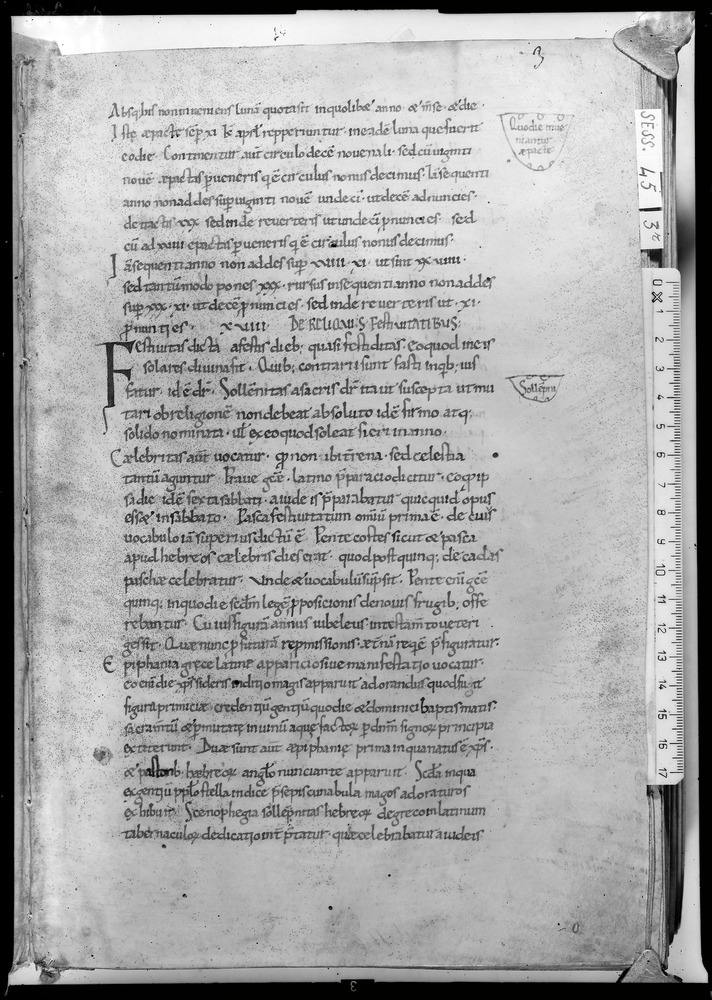 3
Absq; his non inveniens lunā quotasit inquolibet anno · & mse · & die ·
Iste æpacte sēp xi kł apł repperiuntur · ineadē luna que fuerit
eodie · Continentur aut circulo decē novenali · sed cū uiginti
Quodie inue
niantur
æpacte
novē æpactas pueneris q ē circulus nonus decimus · Insequenti
anno non addes sup uiginti novē undeci · ut decē ad nuncies ·
detractis xxx sed inde reverteris ut undeci pnuncies · sed
cū ad xviii epactas pueneris q ē circulus nonus decimus ·
Insequenti anno non addes sup xviiii · xi · ut sint xx viiii ·
sed tantūmodo pones xxx · rursus insequenti anno non addes
sup xxx · xi · ut decē pnuncies · sed inde reverteris ut · xi ·
pnunties · xviii · DE RELIQUIS FESTIVITATIBUS ;
Festivitas dicta a festis dieb; quasi festiditas · Eo quod in eis
solares divina fit · Quib; contrarii sunt fasti inqb; ius
Sollēpni
fatur · id ē dr · Sollēnitas a sacris dr ita ut suscepta ut mu
tari ob religionē non debeat ab solito idē firmo atq;
solido nominata · uł ex eo quod soleat fieri in anno ·
Cælebritas aut vocatur · qp non ibi trena · sed celestia
tantū aguntur · Prave gce · latino pparacio dicitur · eo q ip
sa die idē sexta sabbati · a iudeis pparabatur quicquid opus
esset in sabbato · Pasca festivitatum omniū prima ē · de cuius
vocabulo iā superius dictū ē · Pentecostes sicut & pasca
apud hebreos cælebris dies erat · quod post quinq; decadas
paschæ celebratur · Unde & vocabulū supsit · Pente enī gce
quinq; inquo die scdm legē pposicionis de novis frugib; offe
rebantur · Cuius figurā annus iubeleus intestamto ueteri
gessit · Quæ nunc p futurā repmissionis ætnā reqē pfiguratur ·
Epiphania grece latine apparicio sive manifestatio vocatur ·
eo enī die xps sideris indicio magis apparuit adorandus quod fuit
figura primiciæ credentiū gentiū quo die & dominici baptismatis
sacramtū & pmutatæ in vinū aque factor p dnm signor principia
extiterunt · Duæ sunt aut æpiphanie prima inqua natus ē xps ·
& pastorib · hæbreor angło nunciante apparuit · Scda inqua
ex gentiū pplo stella indice psepis cunabula magos adoraturos
exhibuit · Scenophegia sollēpnitas hebreor de greco in latinum
tabernaculor dedicatio intptatur · quæ celebrabatur a iudeis
SESS. 45 3r
0 1 2 3 4 5 6 7 8 9 10 11 12 13 14 15 16 17
3